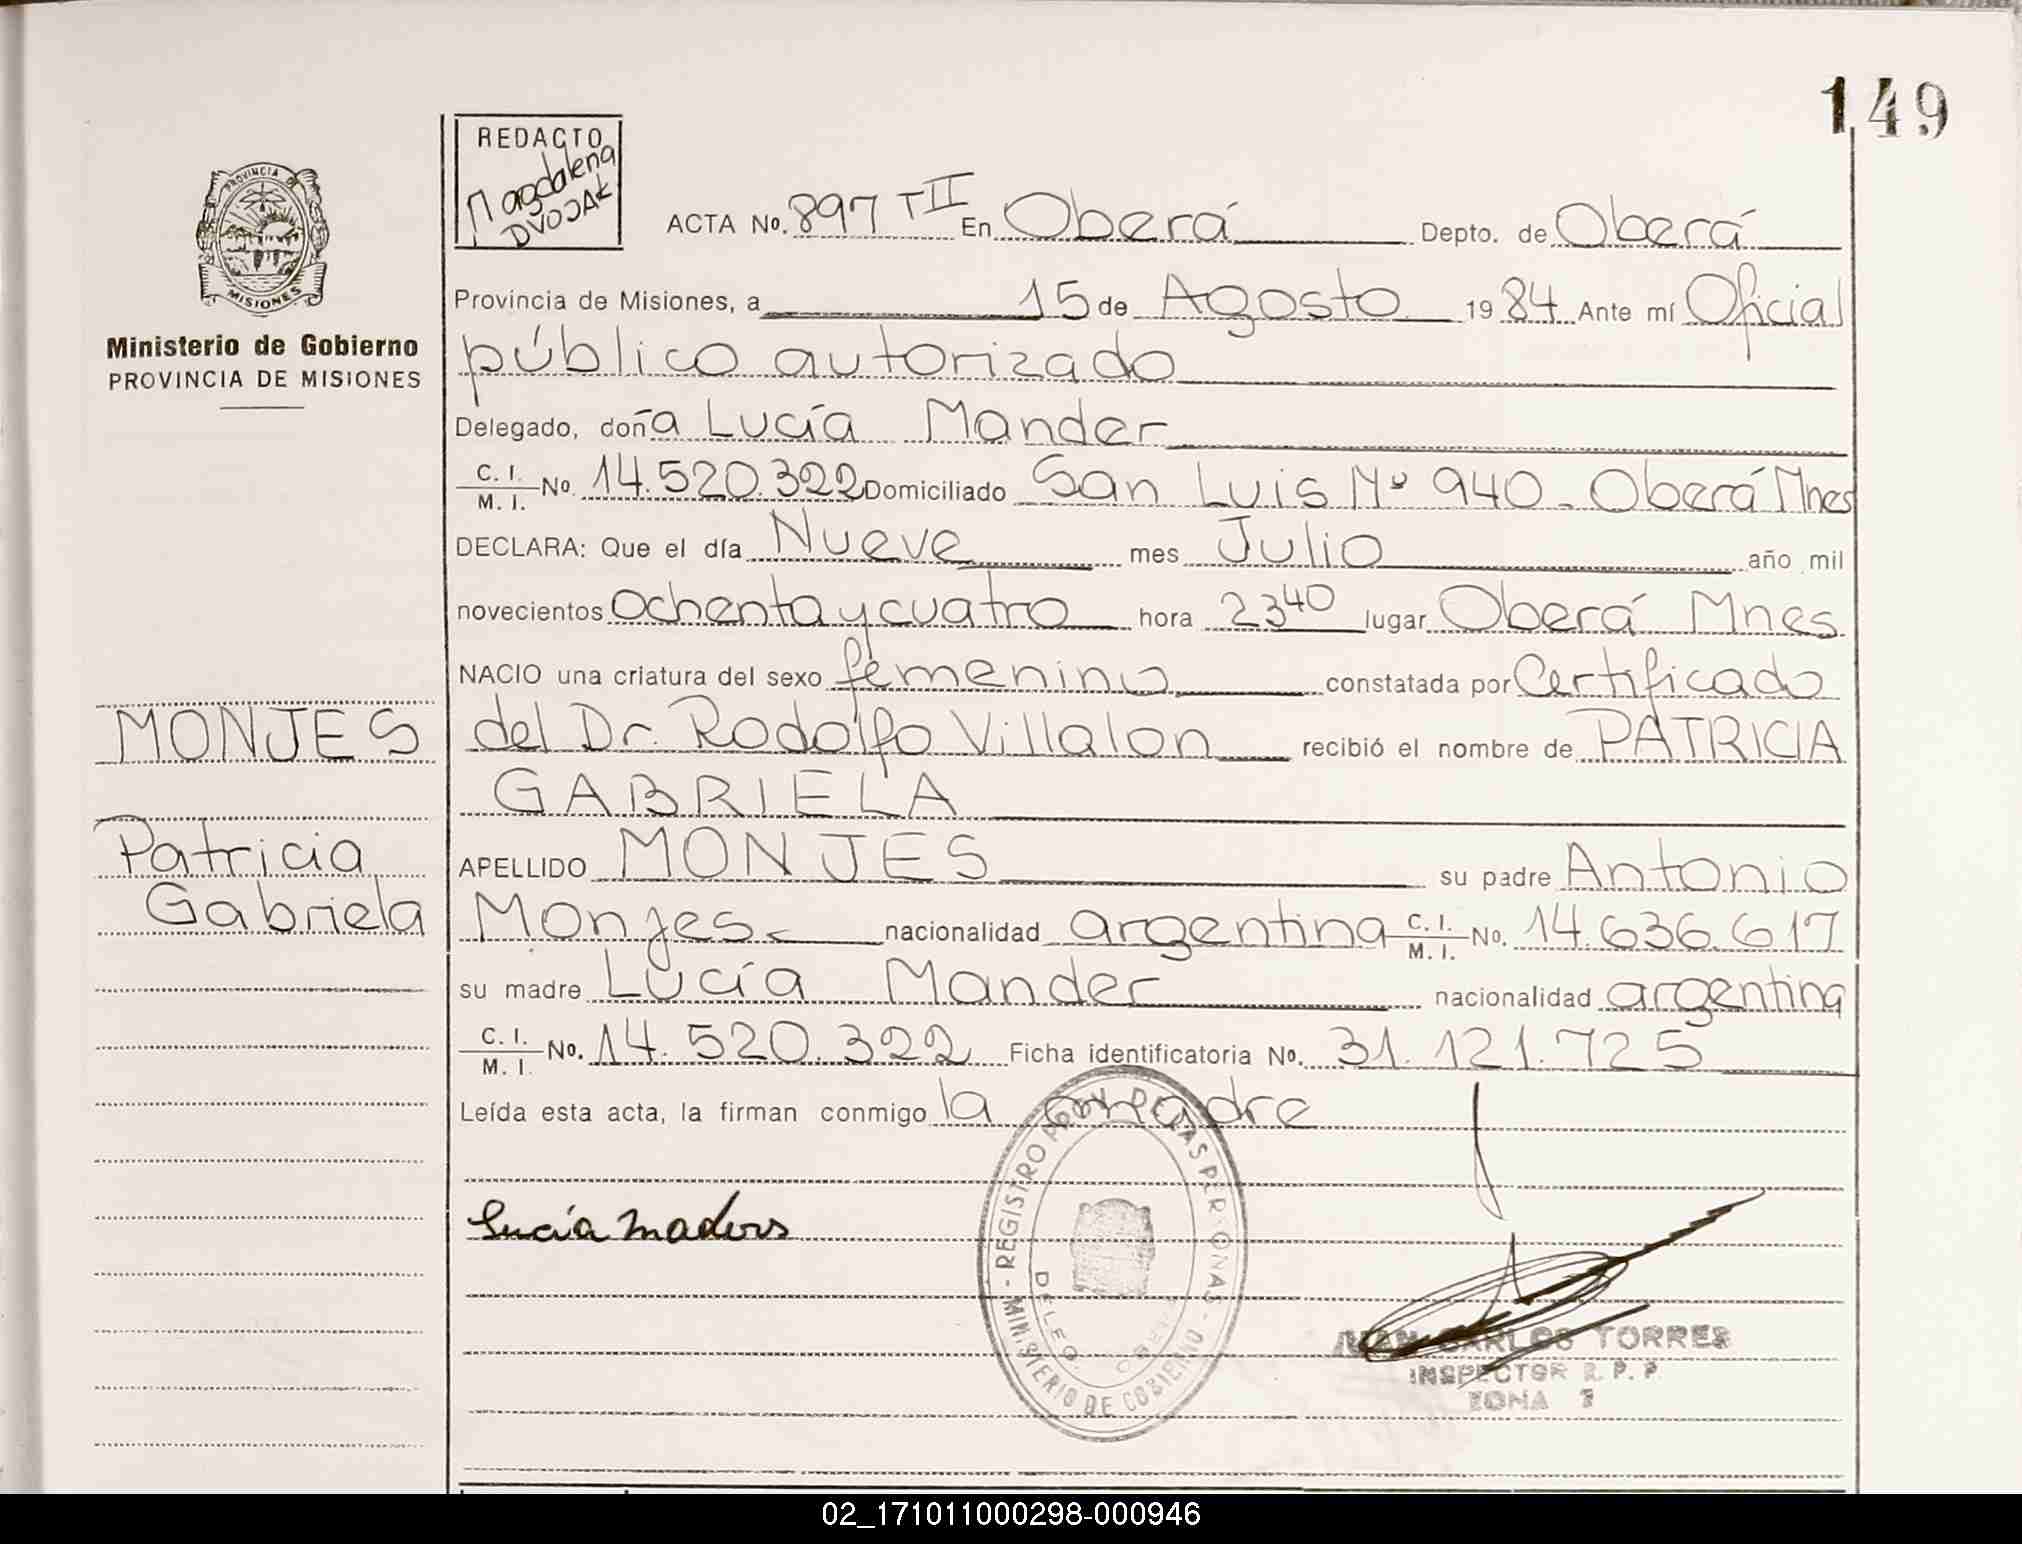 149
REDACTO
Magdalena
DVOJAK
PROVINCIA DE
MISIONES
Ministerio de Gobierno
PROVINCIA DE MISIONES
ACTA No. 897 T II En Oberá Depto. de Oberá
Provincia de Misiones, a 15 de Agosto 1984 Ante mí Oficial
público autorizado
Delegado, doña Lucía Mander
C. I. / M. I. No. 14.520.322 Domiciliado San Luis Nº 940 - Oberá Mnes
DECLARA: Que el día Nueve mes Julio año mil
novecientos ochenta y cuatro hora 23 40 lugar Oberá Mnes.
NACIO una criatura del sexo femenino constatada por Certificado
MONJES
del Dr. Rodolfo Villalon recibió el nombre de PATRICIA
GABRIELA
Patricia
Gabriela
APELLIDO MONJES su padre Antonio
Monjes nacionalidad argentina C. I. / M. I. No. 14.636.617
su madre Lucía Mander nacionalidad argentina
C. I. / M. I. No. 14.520.322 Ficha identificatoria No. 31.121.725
Leída esta acta, la firman conmigo la madre
Lucía
- REGISTRO PROV. DE LAS PERSONAS - MINISTERIO DE GOBIERNO
DELEG. OBERA
JUAN CARLOS TORRES
INSPECTOR R. P. P.
ZONA
02_171011000298-000946